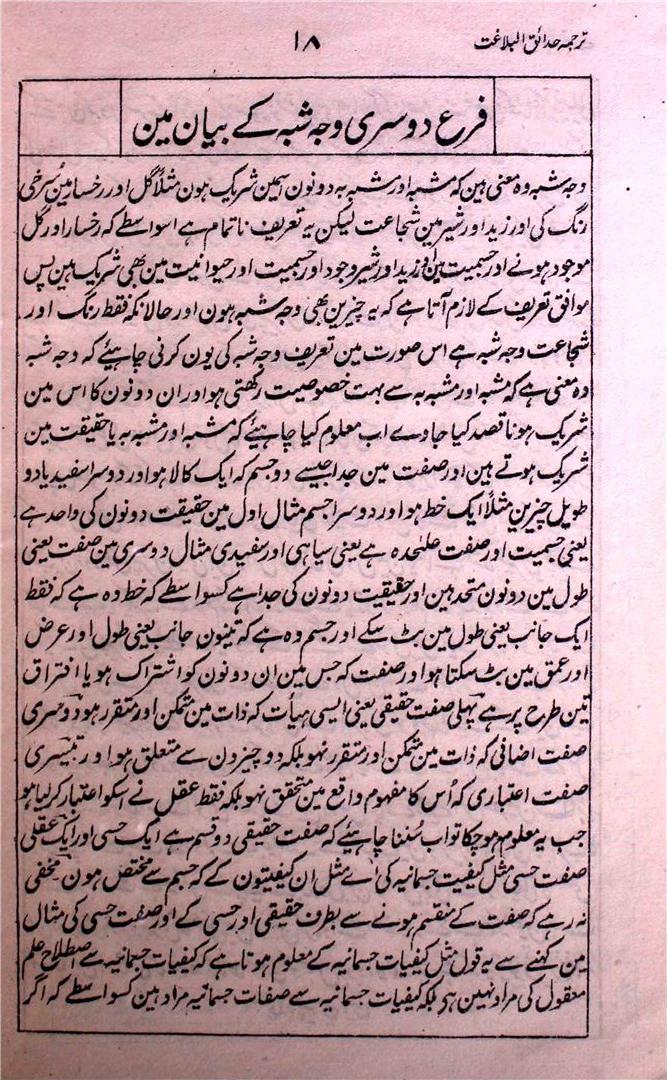 ترجمہ حدائق البلاغت
۱۸
فرع دوسری وجہ شبہ کے بیان مین
وجہ شبہ وہ معنی ہین کہ مشبہ اور مشبہ بہ دونون اسمین شریک ہون مثلاً گل اور رخسار مین سُرخی
رنگ کی اور زید اور شیر مین شجاعت لیکن یہ تعریف ناتمام ہے اسواسطے کہ رخسار اور گل
موجود ہونے اور جسمیت مین اور زید اور شیر وجود اور جسمیت اور حیوانیت مین بھی شریک ہین پس
موافق تعریف کے لازم آتا ہے کہ یہ چیزین بھی وجہ شبہ ہون اور حالانکہ فقط رنگ اور
شجاعت وجہ شبہ ہے اس صورت مین تعریف وجہ شبہ کی یون کرنی چاہیئے کہ وجہ شبہ
وہ معنی ہے کہ مشبہ اور مشبہ بہ سے بہت خصوصیت رکھتی ہو اور ان دونون کا اس مین
شریک ہونا قصد کیا جاوے اب معلوم کیا چاہیئے کہ مشبہ اور مشبہ بہ یا حقیقت مین
شریک ہوتے ہین اور صفت مین جدا جیسے دو جسم کہ ایک کالا ہو اور دوسرا سفید یا دو
طویل چیزین مثلاً ایک خط ہو اور دوسرا جسم مثال اول مین حقیقت دونون کی واحد ہے
یعنی جسمیت اور صفت علٰحدہ ہے یعنی سیاہی اور سفیدی مثال دوسری مین صفت یعنی
طول مین دونون متحد ہین اور حقیقت دونون کی جدا ہے کسواسطے کہ خط وہ ہے کہ فقط
ایک جانب یعنی طول مین بٹ سکے اور جسم وہ ہے کہ تینون جانب یعنی طول اور عرض
اور عمق مین بٹ سکتا ہو اور صفت کہ جس مین ان دونون کو اشتراک ہو یا افتراق
تین طرح پر ہے پہلی صفت حقیقی یعنی ایسی ہیأت کہ ذات مین متمکن اور متقرر ہو دوسری
صفت اضافی کہ ذات مین متمکن اور متقرر نہو بلکہ دو چیزون سے متعلق ہو اور تیسری
صفت اعتباری کہ اُس کا مفہوم واقع مین متحقق نہو بلکہ فقط عقل نے اسکو اعتبار کر لیا ہو
جب یہ معلوم ہو چکا تو اب سُننا چاہیئے کہ صفت حقیقی دو قسم ہے ایک حسی اور ایک عقلی
صفت حسی مثل کیفیت جسمانیہ کی اے مثل ان کیفیتون کے کہ جسم سے مختص ہون ۔ مخفی
نہ رہے کہ صفت کے منقسم ہونے سے بطرف حقیقی اور حسی کے اور صفت حسی کی مثال
مین کہنے سے یہ قول مثل کیفیات جسمانیہ کے معلوم ہوتا ہے کہ کیفیات جسمانیہ سے اصطلاح علم
معقول کی مراد نہین ہے بلکہ کیفیات جسمانیہ سے صفات جسمانیہ مراد ہین کسواسطے کہ اگر